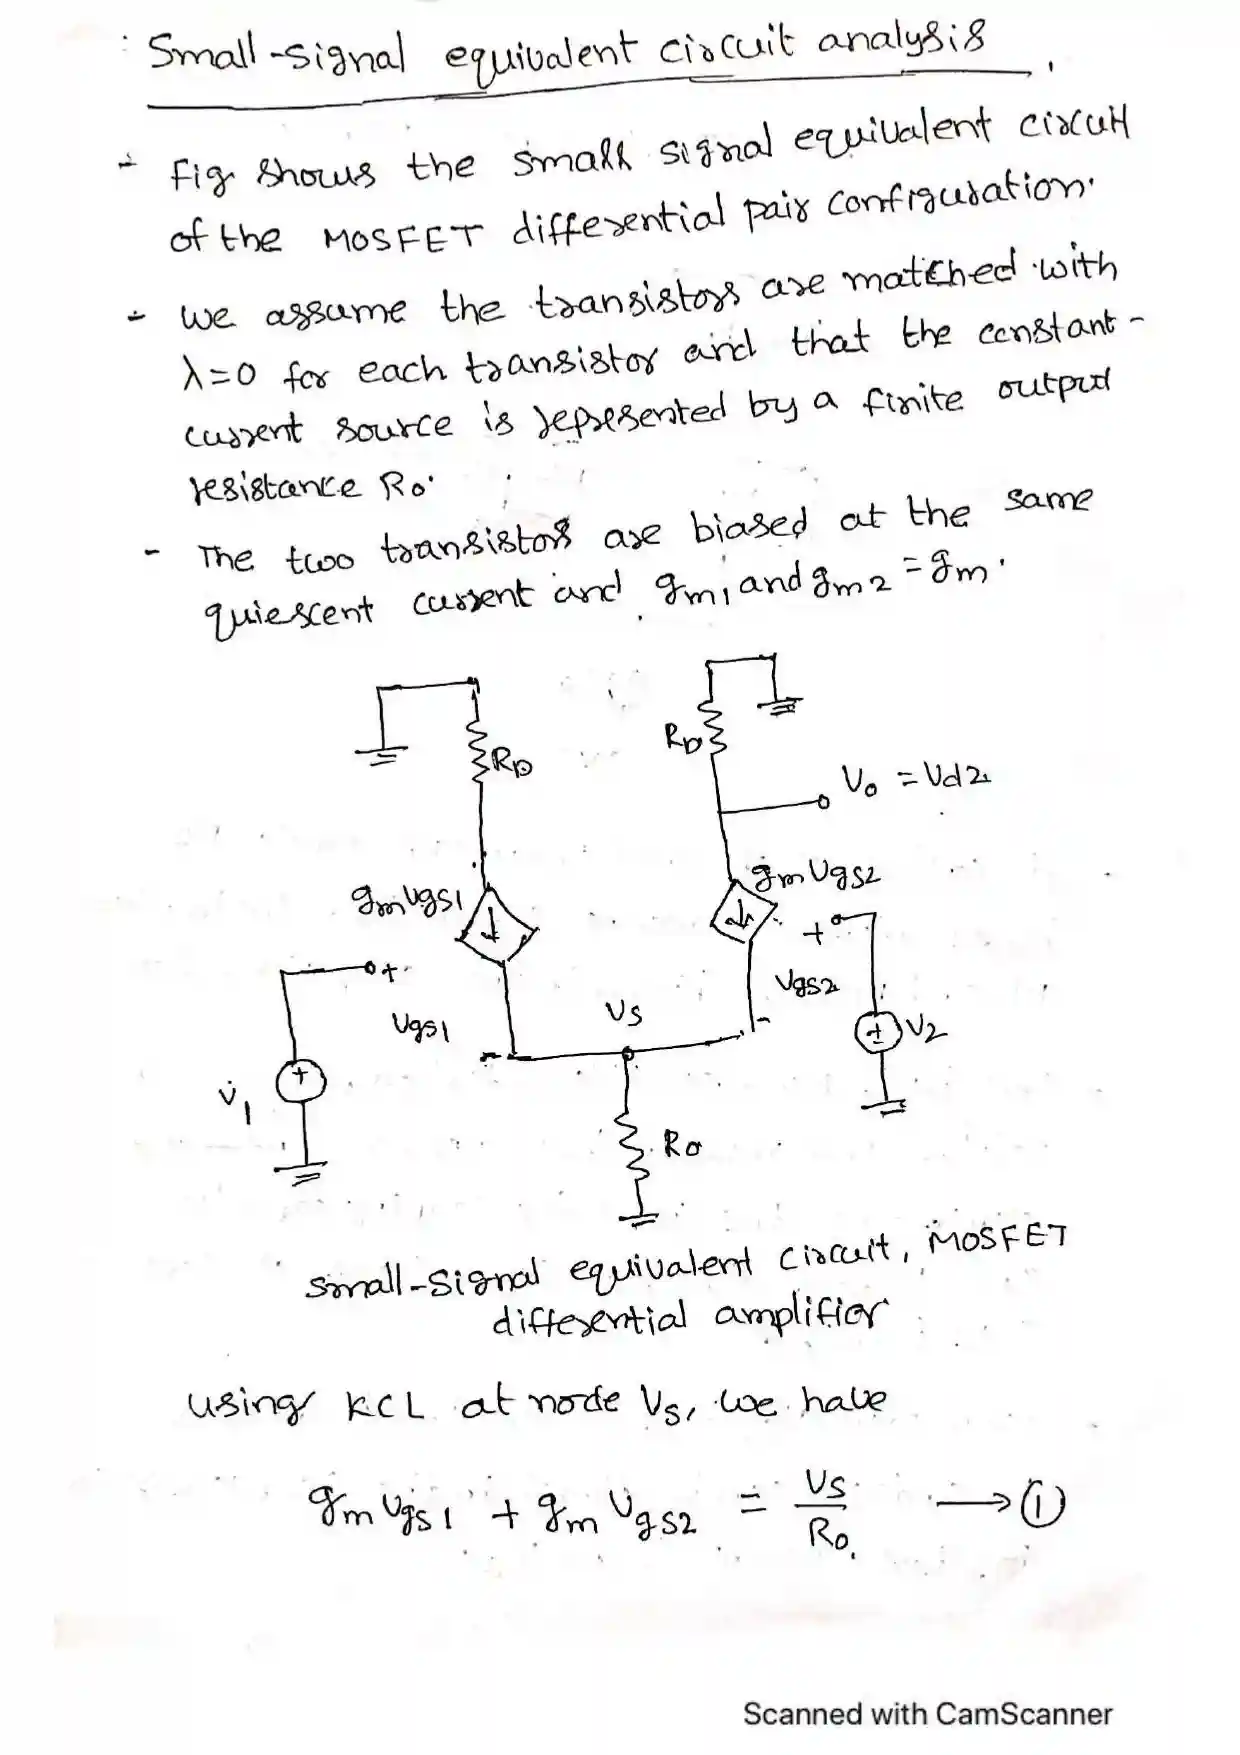 Small-signal equivalent circuit analysis.
- Fig shows the small signal equivalent circuit
of the MOSFET differential pair configuration.
- We assume the transistors are matched with
λ=0 for each transistor and that the constant-
current source is represented by a finite output
resistance Ro.
- The two transistors are biased at the same
quiescent current and gm1 and gm2 = gm.
RD
RD
Vo = Vd2
gmVgs1
gmVgs2
+
+
Vgs1
Vs
Vgs2
-
-
+
V1
±
V2
Ro
small-signal equivalent circuit, MOSFET
differential amplifier
using KCL at node Vs, we have
gm Vgs1 + gm Vgs2 = Vs/Ro. → ①
Scanned with CamScanner